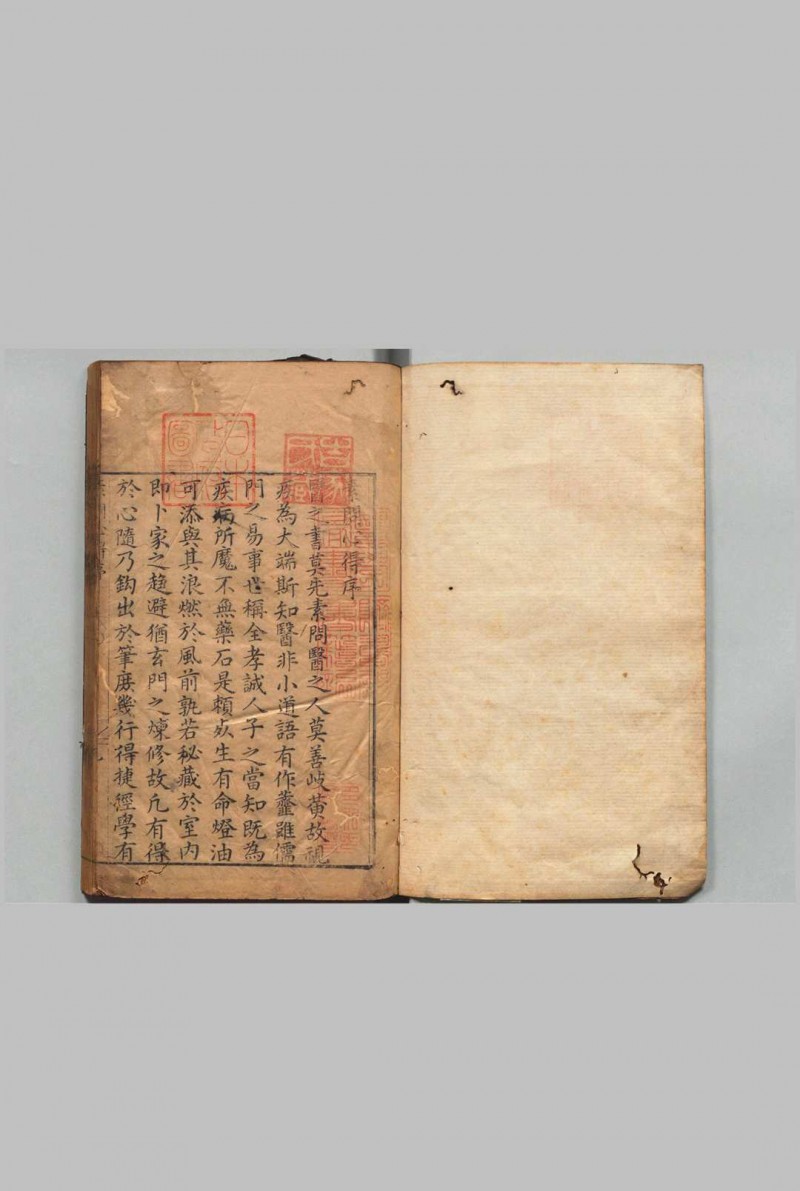 素問心得序
醫之書莫先素問醫之人莫善岐黄故視
疾為大端斯知醫非小道語有作虀雖儒
門之易事世稱全孝誠人子之當知既為
疾病所魔不無藥石是頼㱕生有命燈油
可添與其浪燃於風前孰若秘藏於室内
即卜家之趨避猶玄門之煉修故凢有得
於心隨乃鈎出於筆庻幾行得捷經學有